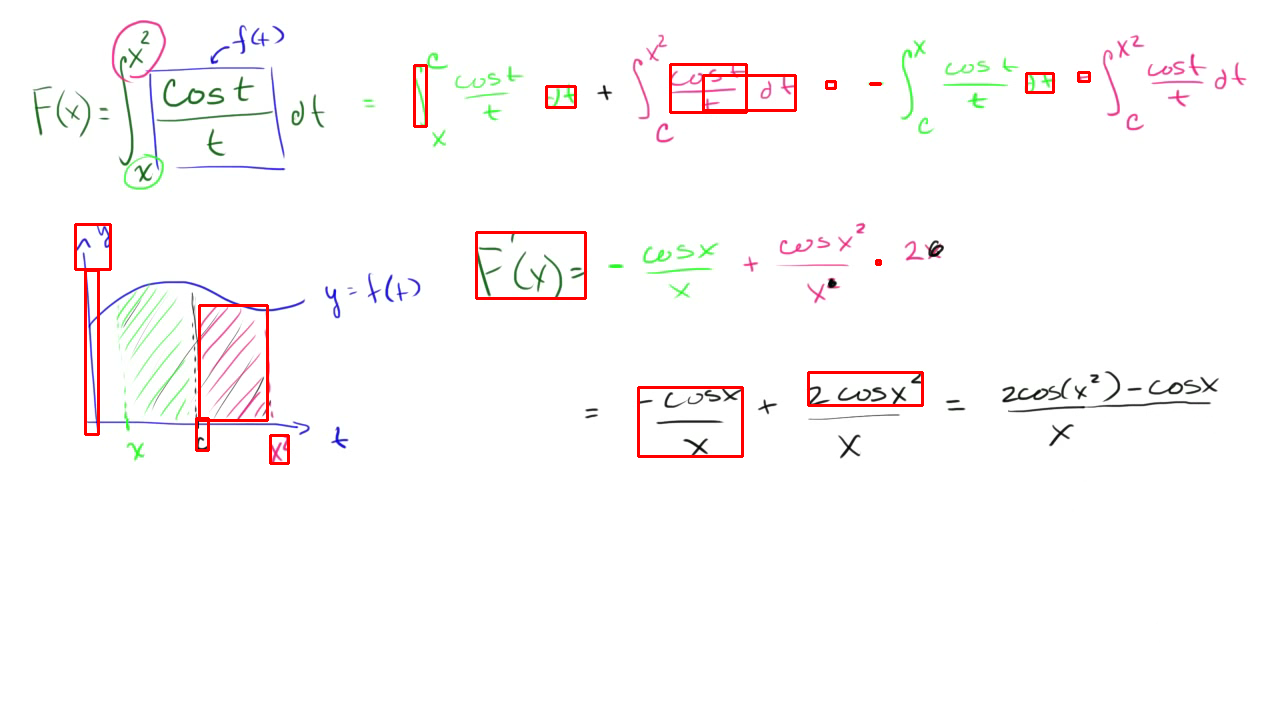 F(x) = ∫_x^{x²} cos t / t dt = ∫_x^c cos t / t dt + ∫_c^{x²} cos t / t dt = - ∫_c^x cos t / t dt + ∫_c^{x²} cos t / t dt
f(t)
F'(x) = - cos x / x + cos x² / x² · 2x
y
y = f(t)
x c x² t
= - cos x / x + 2 cos x² / x = 2cos(x²) - cos x / x